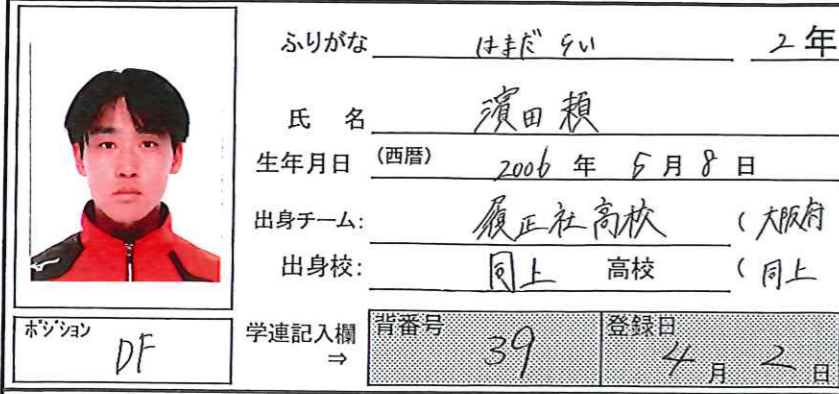 ふりがな はまだ らい 2年
氏 名 濱田頼
生年月日 (西暦) 2006 年 5月 8日
出身チーム: 履正社高校 (大阪府
出身校: 同上 高校 (同上
ポジション DF
学連記入欄 ⇒
背番号 39
登録日 4月 2日